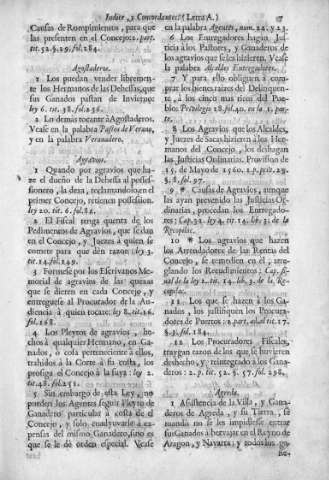 Indice, y Concordantes (Letra A.)
Causas de Rompimientos, para que
las presenten en el Concejo: 2. part.
tit. 52. §. 29. fol. 284.
Agostaderos.
1 Los puedan vender libremen-
te los Hermanos de las Dehessas, que
sus Ganados pastan de Invierno:
ley 6. tit. 38. fol. 256.
2 Lo demás tocante à Agostaderos.
Vease en la palabra Pastos de Verano,
y en la palabra Veranadero.
Agravios.
1 Quando por agravio que ha-
ze el dueño de la Dehessa al posses-
sionero, la dexa, reclamandolo en el
primer Concejo, retienen possession.
ley 20. tit. 6. fol. 81.
2 El Fiscal tenga quenta de los
Pedimentos de Agravios, que se dan
en el Concejo, y Juezes à quien se
comete para que dèn razon: ley 3.
tit. 14. fol. 149.
3 Formese por los Escrivanos Me-
morial de agravios de las quexas
que se dieren en cada Concejo, y
entreguese al Procurador de la Au-
diencia à quien tocare: ley 8. tit. 16.
fol. 168.
4 Los Pleytos de agravios, he-
chos à qualquier Hermano, en Ga-
nados, ò cosa perteneciente à ellos,
trahidos à la Corte à su costa, los
prosiga el Concejo à la suya: ley 2.
tit. 48. fol. 251.
5 Sin embargo de esta Ley, no
pueden los Agentes seguir Pleyto de
Ganadero particular à costa de el
Concejo, y solo coadyuvarle à ex-
pensas del mismo Ganadero, sino es
que se le dè orden especial. Vease
en la palabra Agentes, num. 22. y 23.
6 Los Entregadores hagan Jus-
ticia à los Pastores, y Ganaderos de
los agravios que se les hizieren. Vease
la palabra Alcaldes Entregadores.
7 Y para ello obliguen à com-
prar los bienes raizes del Delinquen-
te, à los cinco mas ricos del Pue-
blo: Privilegio 18. fol. 40. en la 1. par-
te.
8 Los Agravios que los Alcaldes,
y Juezes de Sacas hizieren à los Her-
manos del Concejo, los deshagan
las Justicias Ordinarias. Provision de
15. de Mayo de 1560. 1. p. priv. 29.
§. 8. fol. 97.
9 * Causas de Agravios, aunque
ayan prevenido las Justicias Or-
dinarias, procedan los Entregado-
res: Cap. 32. ley 4. tit. 14. lib. 3. de la
Recopilac.
10 * Los agravios que hazen
los Arrendadores de las Rentas del
Concejo, se remedien en èl, arre-
glando los Rendimientos: Cap. fi-
nal de la ley 1. tit. 14. lib. 3. de la Re-
copilac.
11 Los que se hazen à los Ga-
nados, los justifiquen los Procura-
dores de Puertos: 2. part. abol. tit. 17.
§. 3. fol. 184.
12 Los Procuradores Fiscales,
traygan razon de los que se huvieren
deshecho, y reintegrado à los Gana-
deros: 2. p. tit. 52. §. 57. fol. 298.
Agreda.
1 Assistencia de la Villa, y Gana-
deros de Agreda, y su Tierra, se
manda no se les impidiesse entrar
sus Ganados à hervajar en el Reyno de
Aragon, y Navarra; y todos los ga-